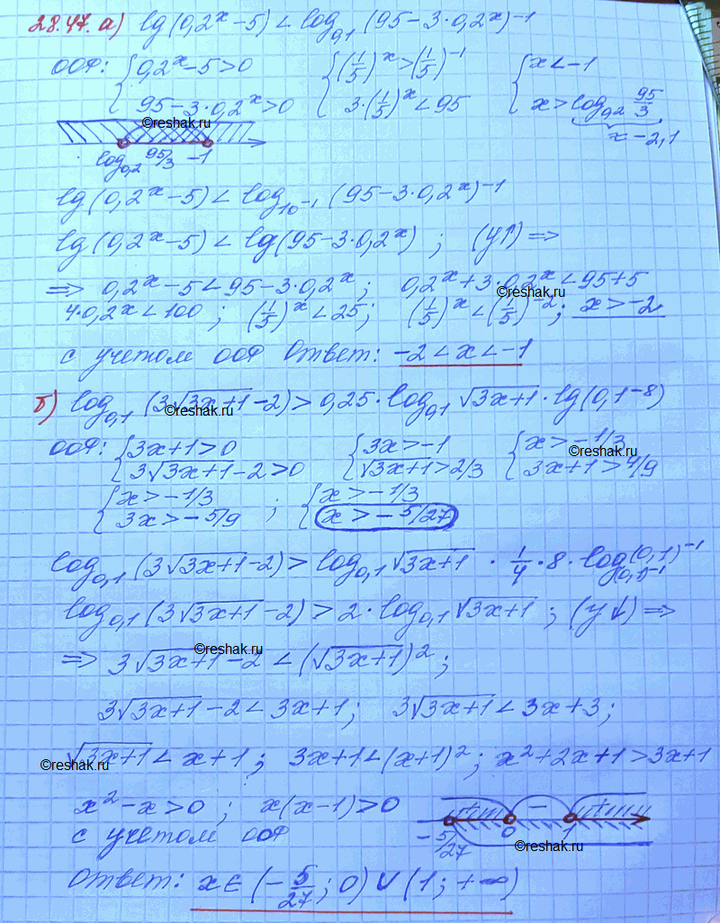 28.47. а) lg(0,2ˣ-5) < log₀,₁ (95-3·0,2ˣ)⁻¹
ООФ: { 0,2ˣ-5>0 { (1/5)ˣ>(1/5)⁻¹ { x<-1
95-3·0,2ˣ>0 3·(1/5)ˣ<95 x>log₀,₂ 95/3
©reshak.ru
x≈-2,1
log₀,₂ 95/3 -1
lg(0,2ˣ-5) < log₁₀₋₁ (95-3·0,2ˣ)⁻¹
lg(0,2ˣ-5) < lg(95-3·0,2ˣ) ; (y↑) ⟹
⟹ 0,2ˣ-5<95-3·0,2ˣ; 0,2ˣ+3·0,2ˣ<95+5
©reshak.ru
4·0,2ˣ<100 ; (1/5)ˣ<25; (1/5)ˣ<(1/5)⁻²; x>-2
с учетом ООФ Ответ: -2<x<-1
б) log₀,₁ (3√3x+1-2)>0,25·log₀,₁ √3x+1·lg(0,1⁻⁸)
©reshak.ru
ООФ: { 3x+1>0 { 3x>-1 { x>-1/3
©reshak.ru
3√3x+1-2>0 √3x+1>2/3 3x+1>4/9
{ x>-1/3 ; { x>-1/3
3x>-5/9 x>-5/27
log₀,₁ (3√3x+1-2)>log₀,₁ √3x+1 · 1/4·8·log₍₀,₁₎₋₁ (0,1)⁻¹
log₀,₁ (3√3x+1-2)>2·log₀,₁ √3x+1 ; (y↓) ⟹
©reshak.ru
⟹ 3√3x+1-2<(√3x+1)²;
3√3x+1-2<3x+1; 3√3x+1<3x+3;
√3x+1<x+1; 3x+1<(x+1)²; x²+2x+1>3x+1
©reshak.ru
x²-x>0 ; x(x-1)>0 + - +
с учетом ООФ -5/27 0 1
©reshak.ru
Ответ: x∈(-5/27; 0)∪(1; +∞)